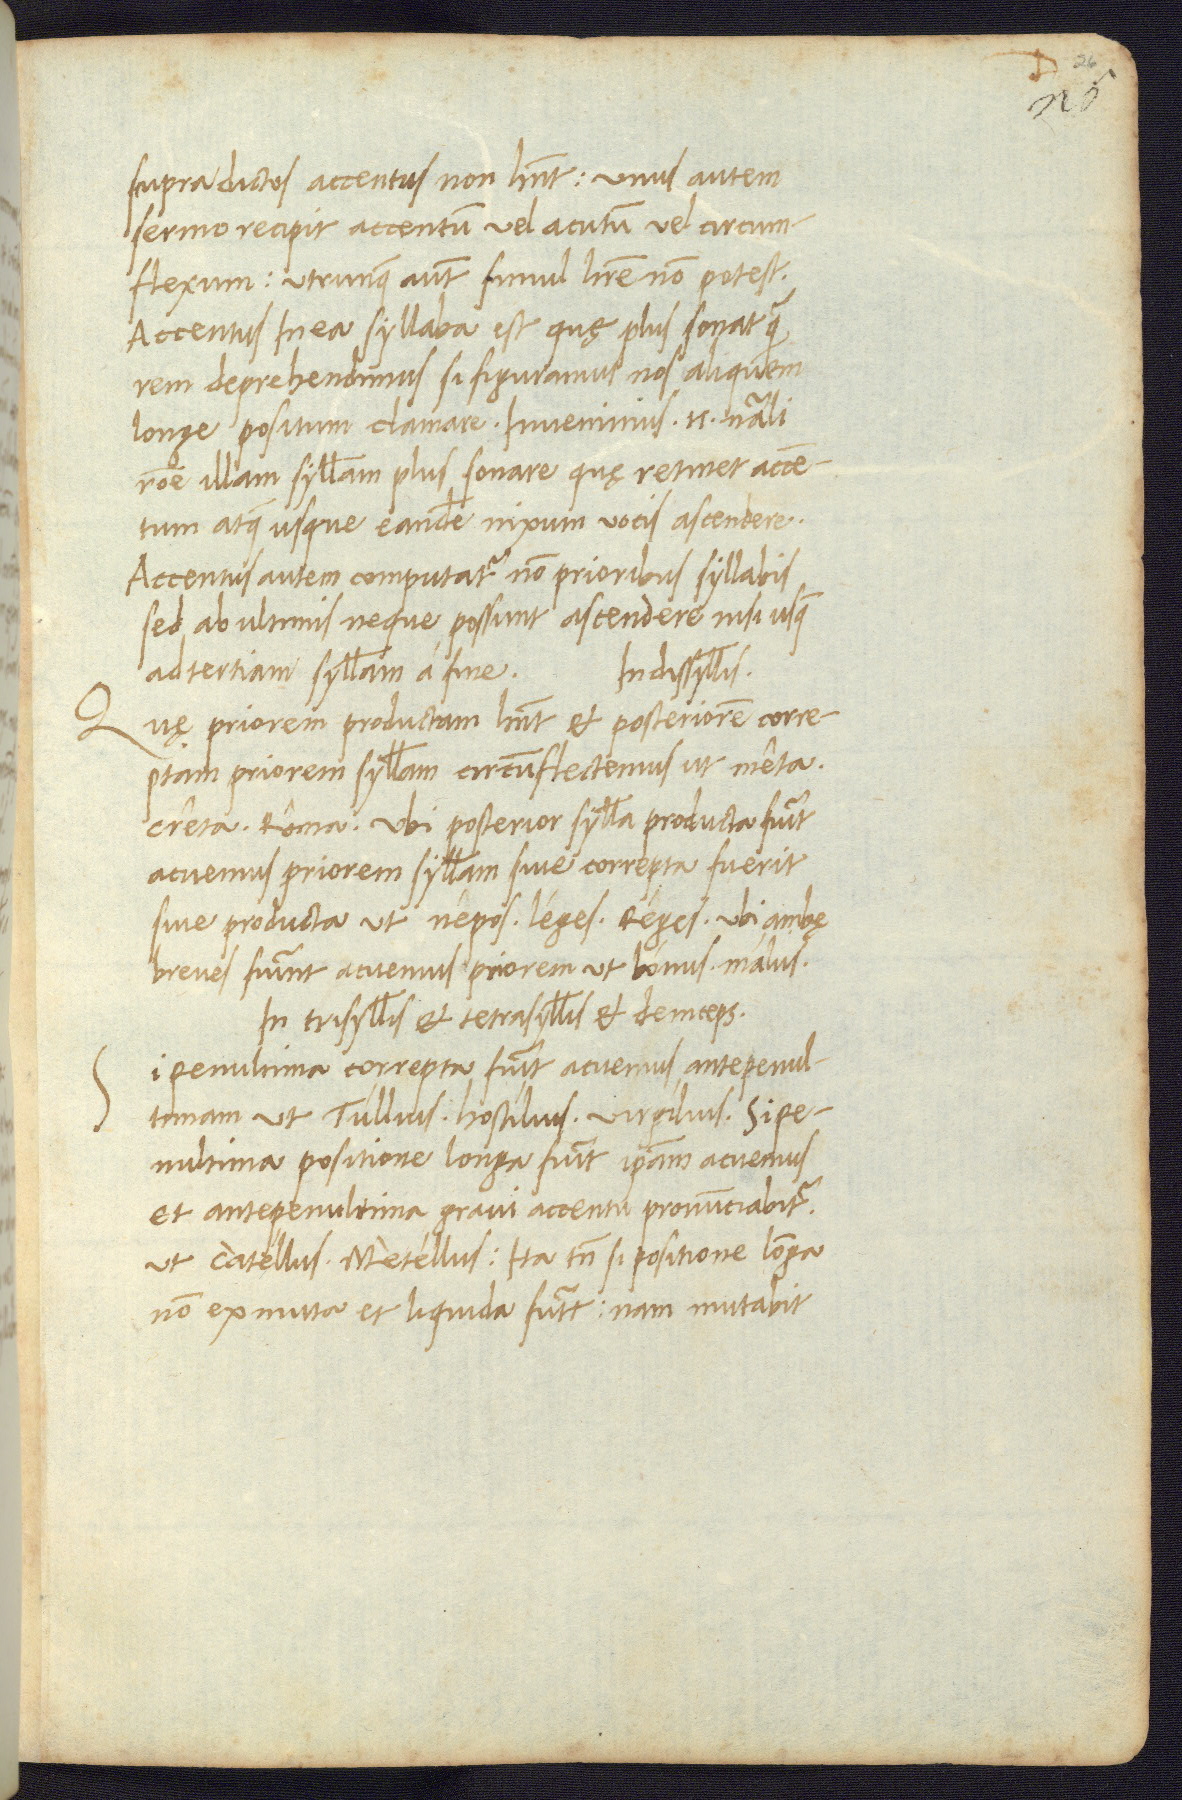 D 26
26
supradictos accentus non hn̄t: unus autem
sermo recipit accentū vel acutū vel circum-
flexum: utrunq̄ aūt simul hr̄e nō potest.
Accentus In ea syllaba est quę plus sonat q̄
rem deprehendimus si figuramus nos aliquem
longe positum clamare. Invenimus .n. nāli
rōe illam syll̄am plus sonare quę retinet accē-
tum atq̄ usque eandē nixum vocis ascendere.
Accentus autem computat᷑ nō prioribus syllabis
sed ab ultimis neque possunt ascendere nisi usq̄
ad tertiam syll̄am á fine. In dissyll̄is.
Quę priorem productam hn̄t et posteriorē corre-
ptam priorem syll̄am circūflectemus ut mêta.
crêta. Rôma. Ubi posterior syll̄a producta fuīt
acuemus priorem syll̄am sive correpta fuerit
sive producta ut népos. léges. Réges. Ubi ambę
breves fuīnt acuemus priorem ut bónus. málus.
In trisyll̄is et tetrasyll̄is et deinceps.
Si penultima correpta fuīt acuemus antepenul-
timam ut Túllius. hostílius. virgílius. Si pe-
nultima positione longa fuīt ip̄am acuemus
et antepenultima gravi accentu pronūciabit᷑.
ut Catéllus. Metéllus: Ita tn̄ si positione lōga
nō ex muta et liquida fuīt: nam mutabit